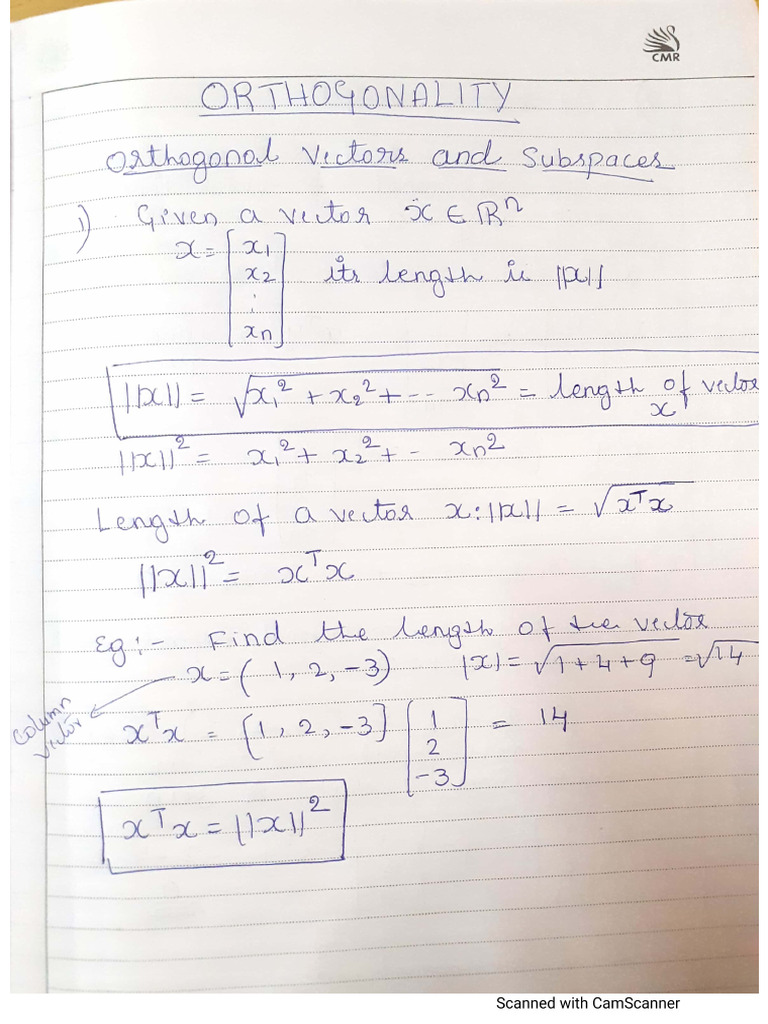 CMR
ORTHOGONALITY
Orthogonal Vectors and Subspaces
1) Given a vector x ∈ ℝⁿ
x = [x₁ x₂ ⋮ xₙ] its length is ||x||
||x|| = √x₁² + x₂² + -- xₙ² = length of vector x
||x||² = x₁² + x₂² + - xₙ²
Length of a vector x: ||x|| = √xᵀx
||x||² = xᵀx
Eg:- Find the length of the vector
x = (1, 2, -3) |x| = √1+4+9 = √14
column vector
xᵀx = (1, 2, -3] [1 2 -3] = 14
xᵀx = ||x||²
Scanned with CamScanner